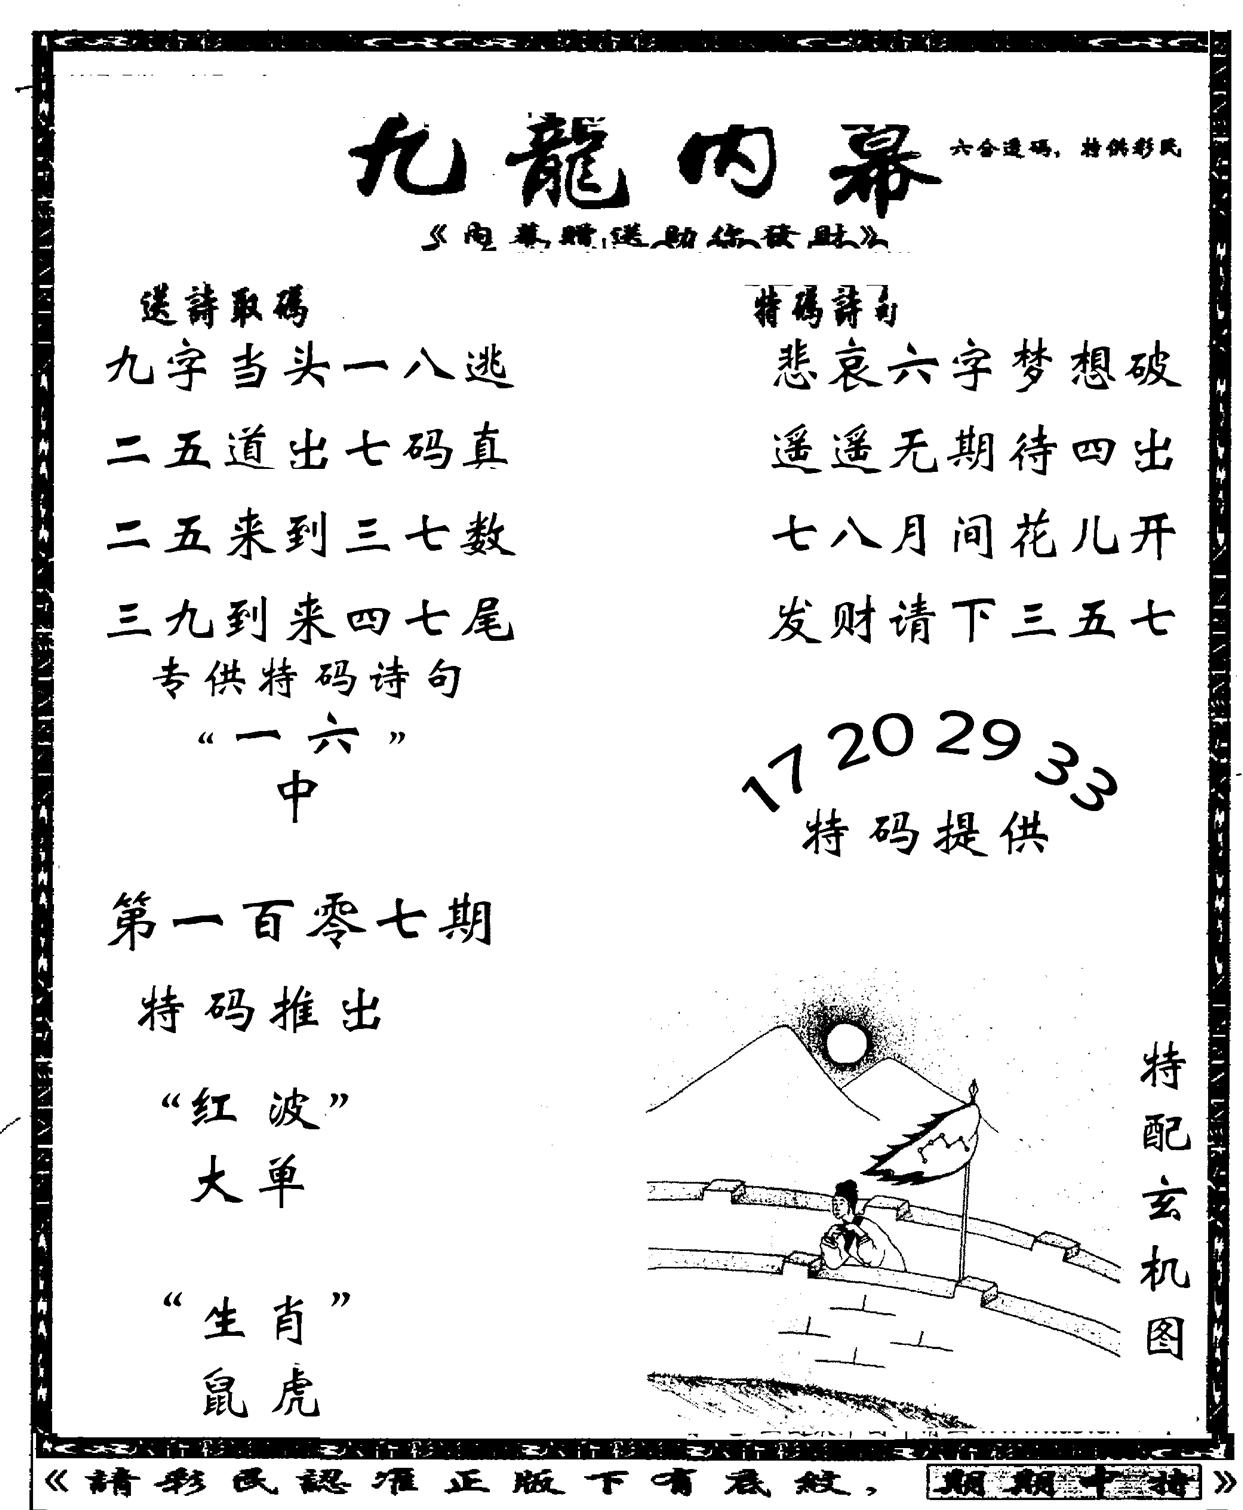 九龍内幕
六合透码，特供彩民
《内幕贈送助你發財》
送詩取碼
九字当头一八逃
二五道出七码真
二五来到三七数
三九到来四七尾
专供特码诗句
“一六”
中
第一百零七期
特码推出
“红波”
大单
“生肖”
鼠虎
特碼詩句
悲哀六字梦想破
遥遥无期待四出
七八月间花儿开
发财请下三五七
17 20 29 33
特码提供
特配玄机图
《請彩民認准正版下有底紋，期期中特》